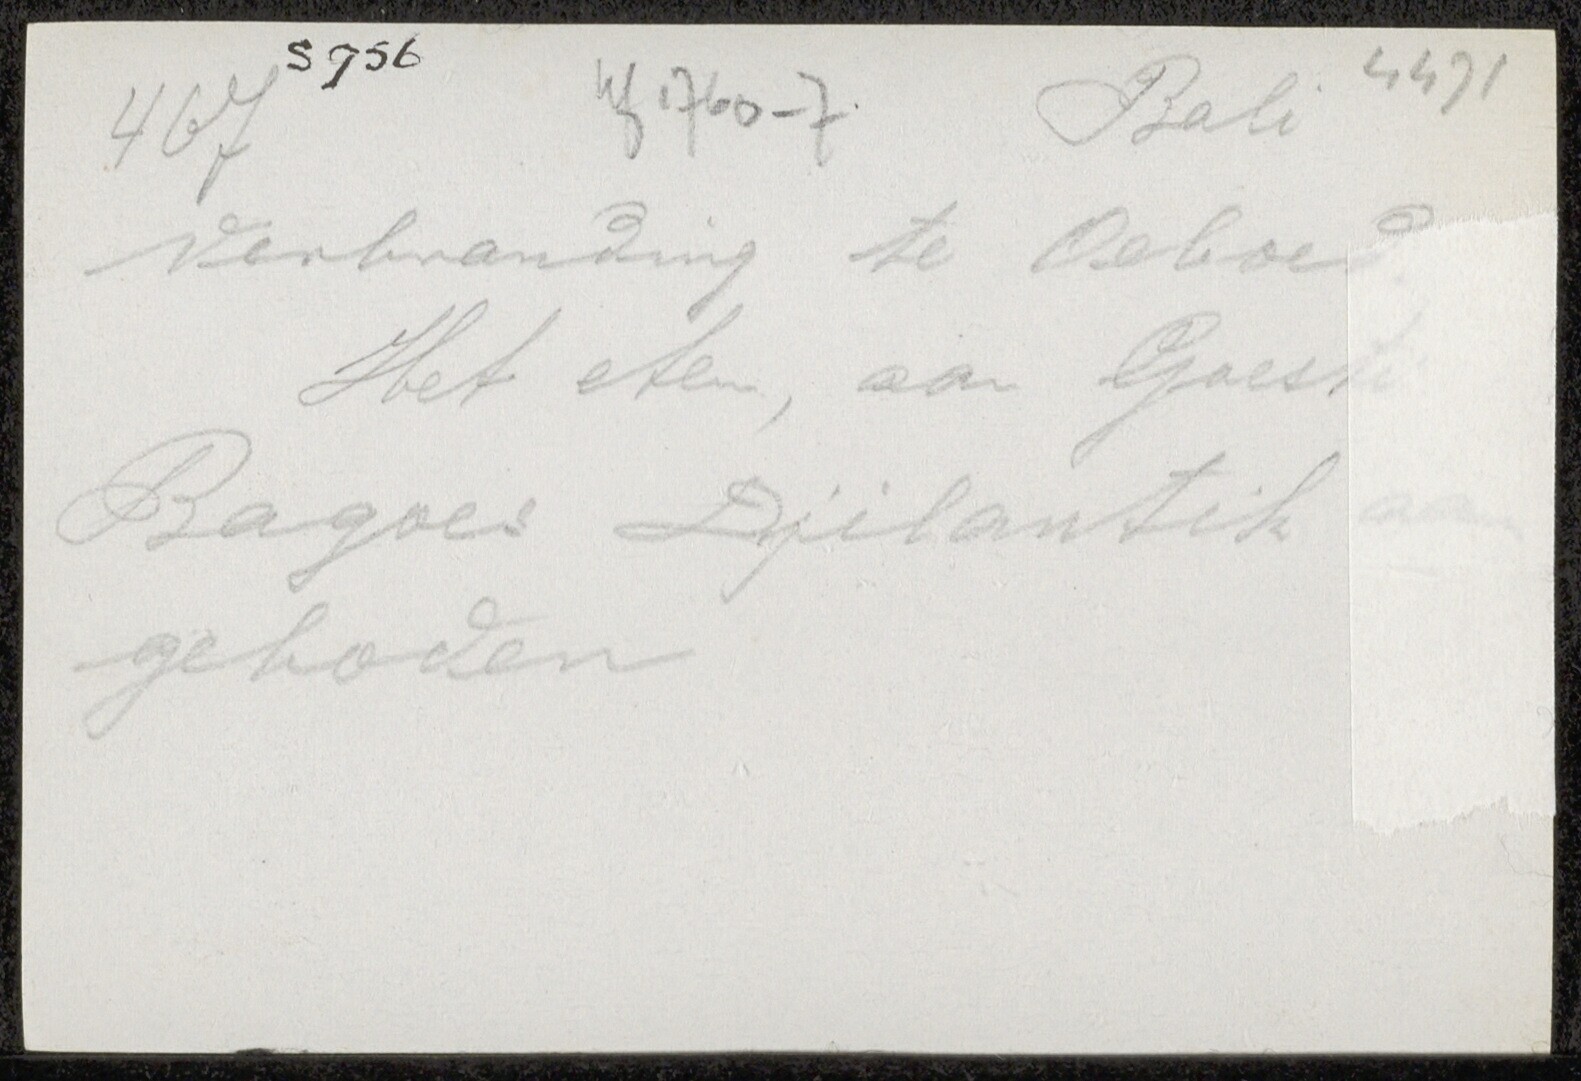 S 756
467 Wf 1760-7. Bali 4471
Verbranding te Oeboed.
Het eten, aan Goesti
Bagoes Djilantik aan
geboden